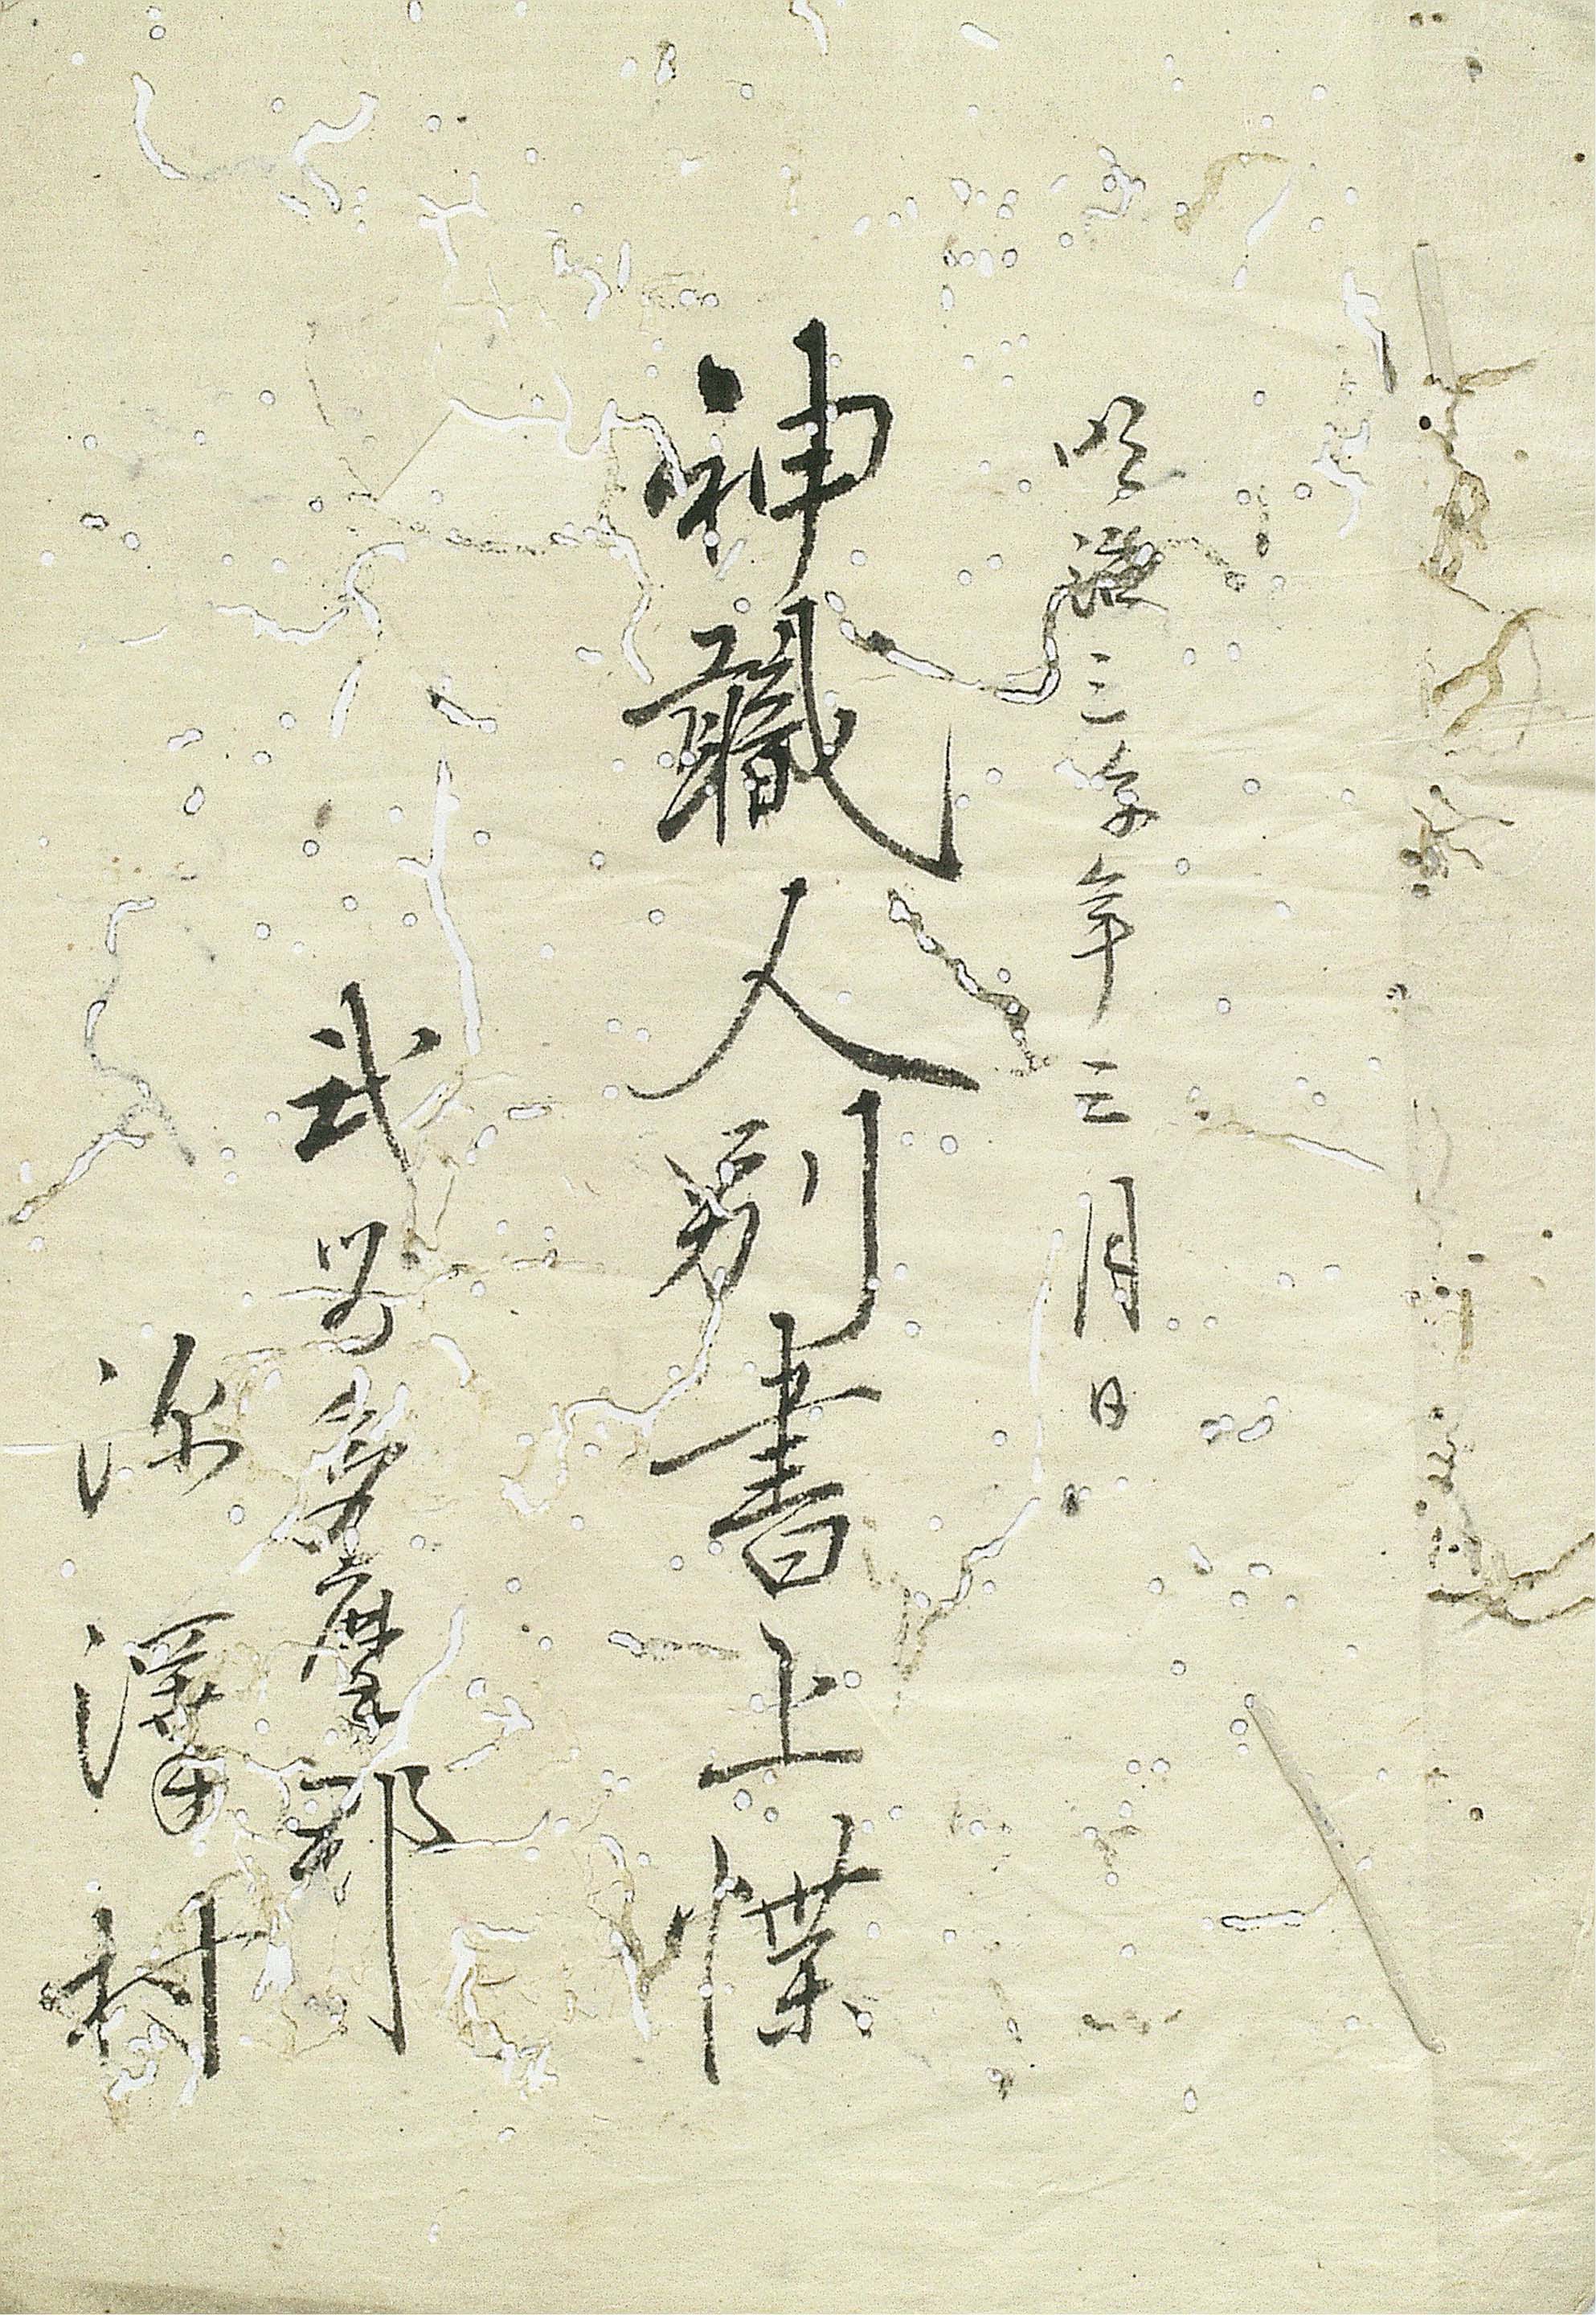 明治三午年三月日
神職人別書上牒
武州多摩郡
深澤村